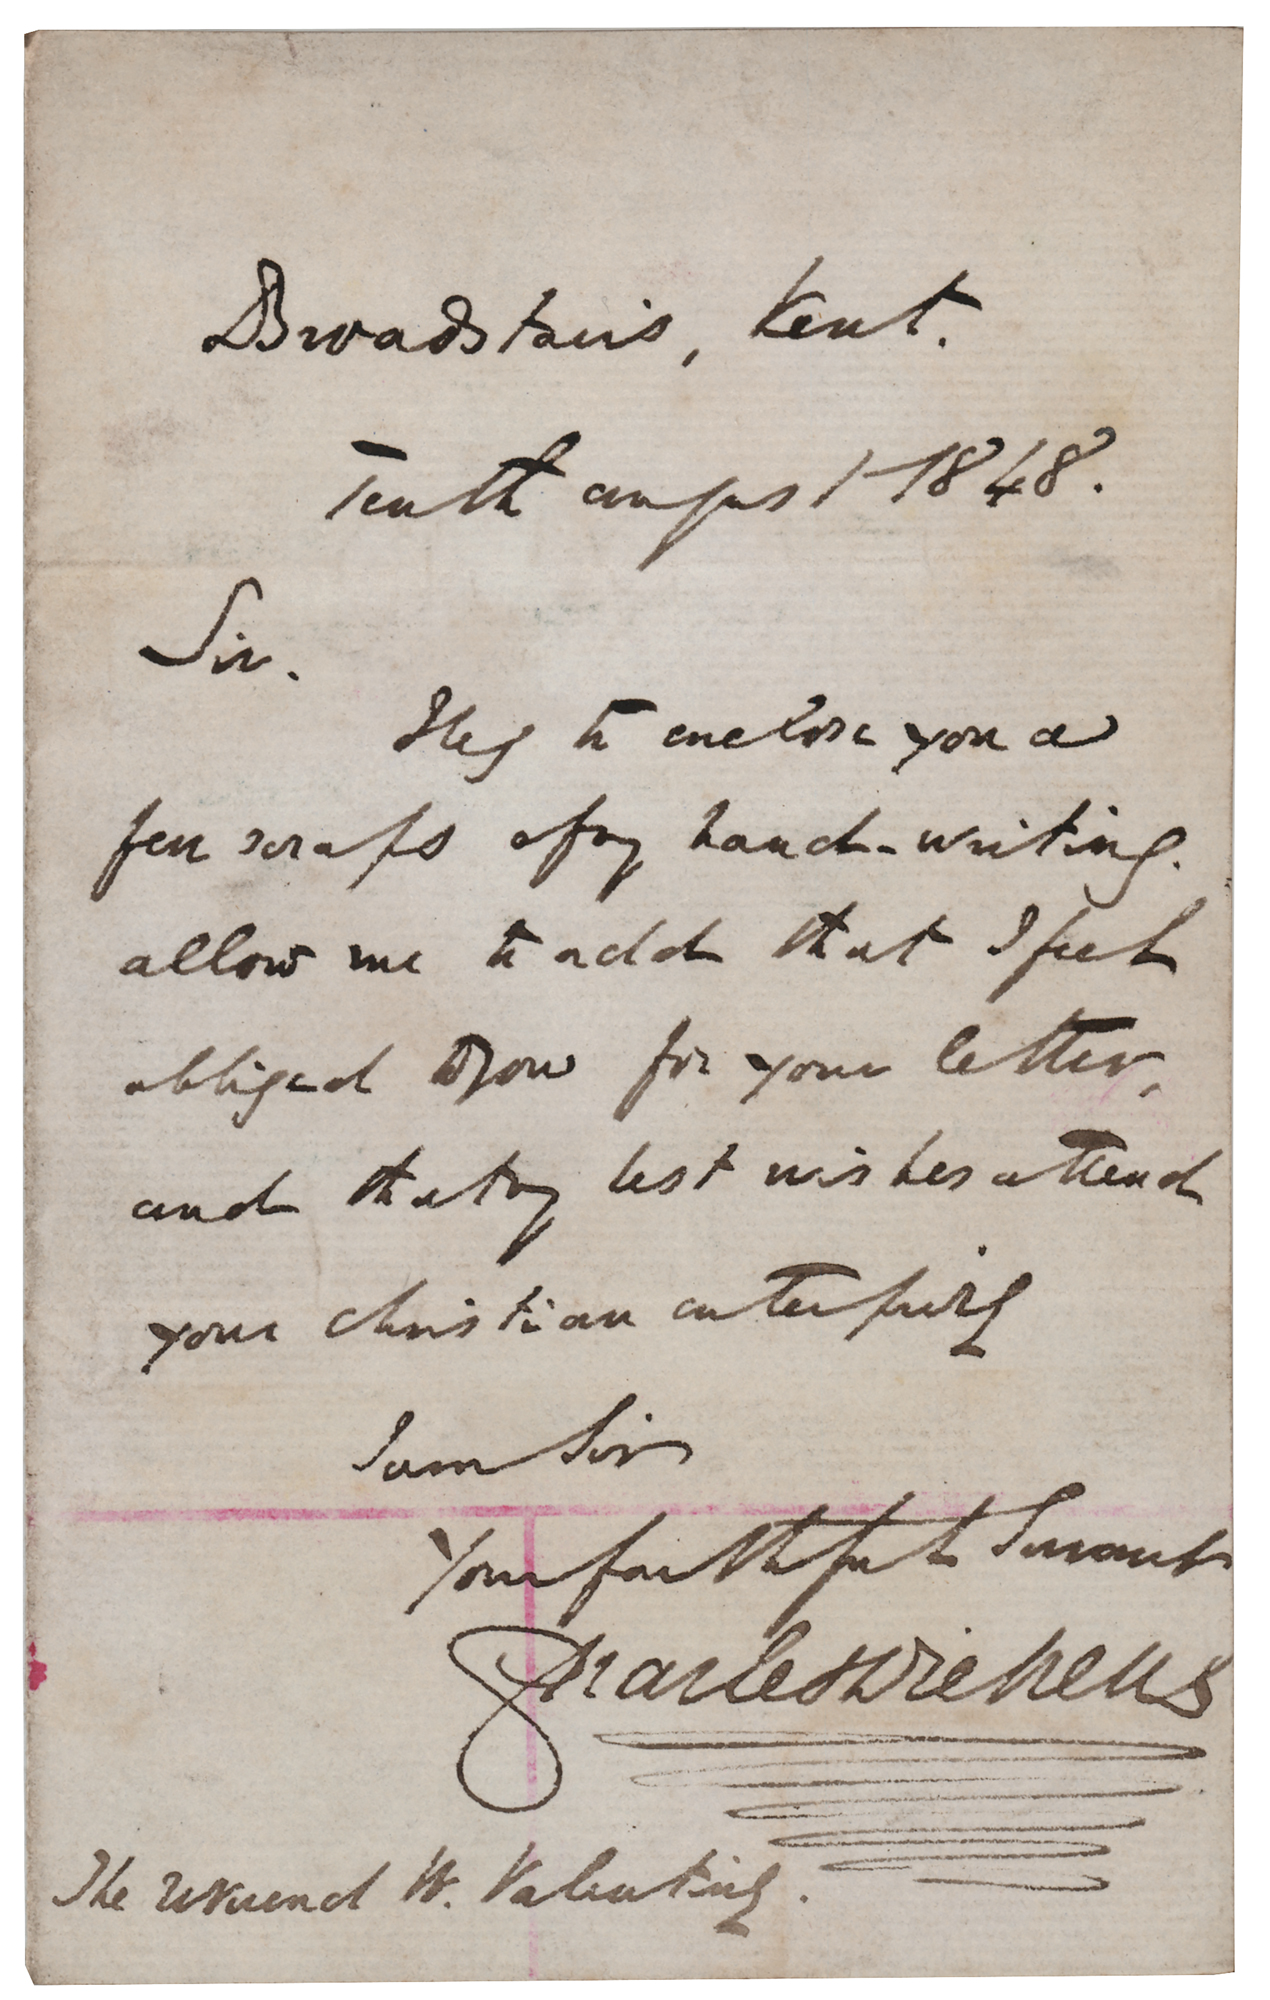 Broadstairs, Kent.
Tenth August 1848.
Sir.
I beg to enclose you a
few scraps of my hand-writing.
allow me to add that I feel
obliged to you for your letter,
and that my best wishes attend
your Christian enterprise
I am Sir
Your faithful Servant
Charles Dickens
The Reverend W. Valentine.